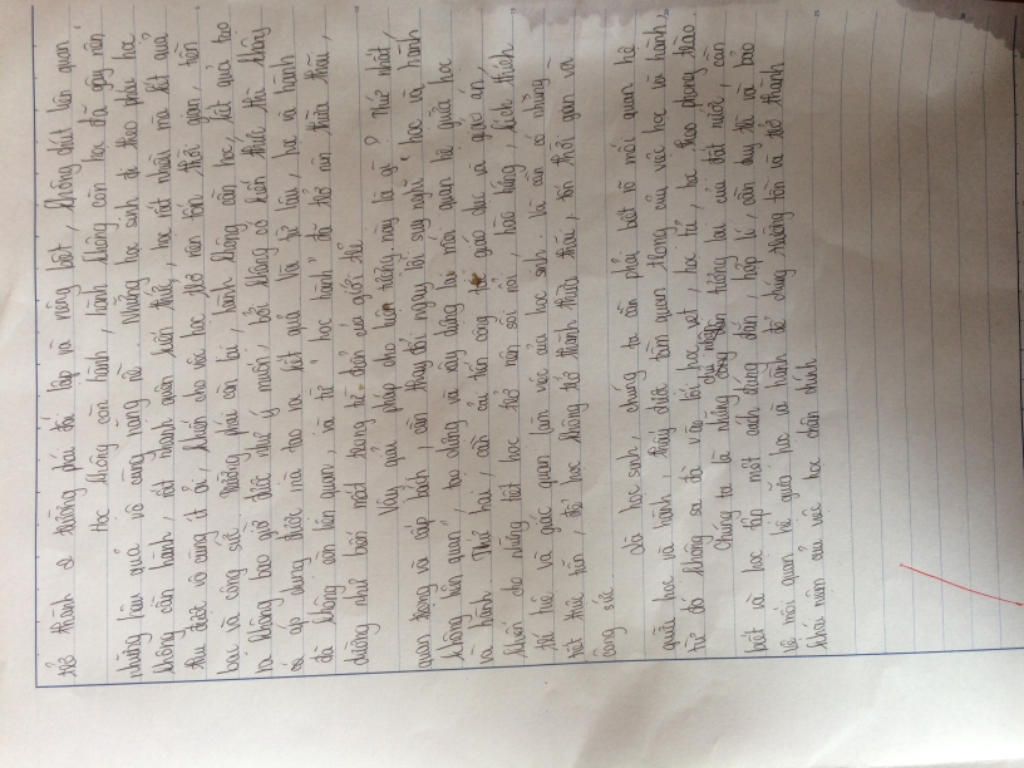 trở thành 2 trường phái đối lập và riêng biệt, không chút liên quan
Học không cần hành, hành không cần học đã gây nên
những hậu quả vô cùng nặng nề. Những học sinh đi theo phái học
không cần hành, rất nhanh quên kiến thức, học rất nhiều mà kết quả
thu được vô cùng ít ỏi, khiến cho việc học trở nên tốn thời gian, tiền
bạc và công sức. Trường phái còn lại, hành không cần học, kết quả tạo
ra không bao giờ được như ý muốn, bởi không có kiến thức thì không
có áp dụng được mà tạo ra kết quả. Và từ lâu, học và hành
đã không còn liên quan, và từ "học hành" đã trở nên thừa thãi,
dường như biến mất trong từ điển của giới trẻ.
Vậy, giải pháp cho hiện tượng này là gì? Thứ nhất,
quan trọng và cấp bách, cần thay đổi ngay lối suy nghĩ "học và hành
không liên quan", bao dung và xây dựng lại mối quan hệ giữa học
và hành. Thứ hai, cần cải tiến công giáo dục và giáo án,
khiến cho những tiết học trở nên sôi nổi, hào hứng, kích thích
trí tuệ và giác quan làm việc của học sinh. Và cần có những
tiết thực tiễn, để học không trở thành thừa thãi, tốn thời gian và
công sức
Là học sinh, chúng ta cần phải biết rõ mối quan hệ
giữa học và hành, thấy được tầm quan trọng của việc học và hành,
từ đó không sa đà vào lối học vẹt, học tủ, học theo phong trào.
Chúng ta là những chủ nhân tương lai của đất nước, cần
biết và học tập một cách đúng đắn, hợp lí, cần duy trì và bảo
vệ mối quan hệ giữa học và hành để chúng trường tồn và trở thành
khái niệm của việc học chân chính